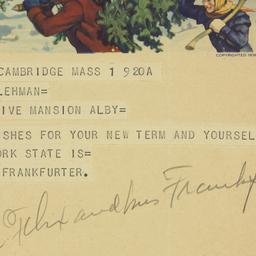 COPYRIGHTED
CAMBRIDGE MASS 1 920A
LEHMAN=
IVE MANSION ALBY=
ISHES FOR YOUR NEW TERM AND YOURSEL
ORK STATE IS=
FRANKFURTER.
Felix and